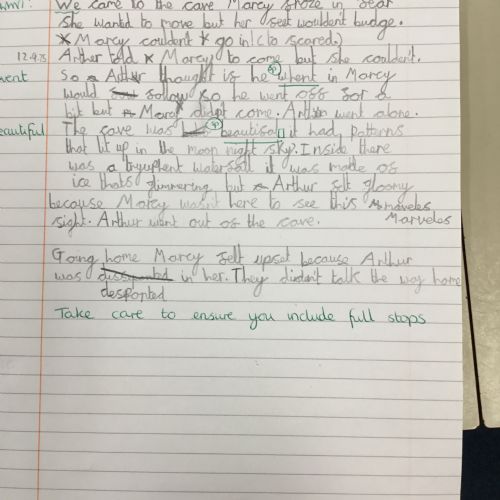 We came to the cave Marcy froze in fear
She wantd to move but her feet wouldent budge.
Marcy couldn't go in! (to scared.)
12.9.75 Arther told Marcy to come but she couldn't.
went So Arther thought if he whent in Marcy
would follow so he went off for a
bit but Marcy didn't come. Arther went alone.
beautiful The cave was beautifal it had patterns
that lit up in the moon night sky. Inside there
was a waterfall it was made of
ice thats glimmering but Arther felt gloomy
because Marcy wasn't here to see this marveles
sight. Arthur went out of the cave. Marveles
Going home Marcy felt upset because Arthur
was in her. They didn't talk the way home
desponted
Take care to ensure you include full stops